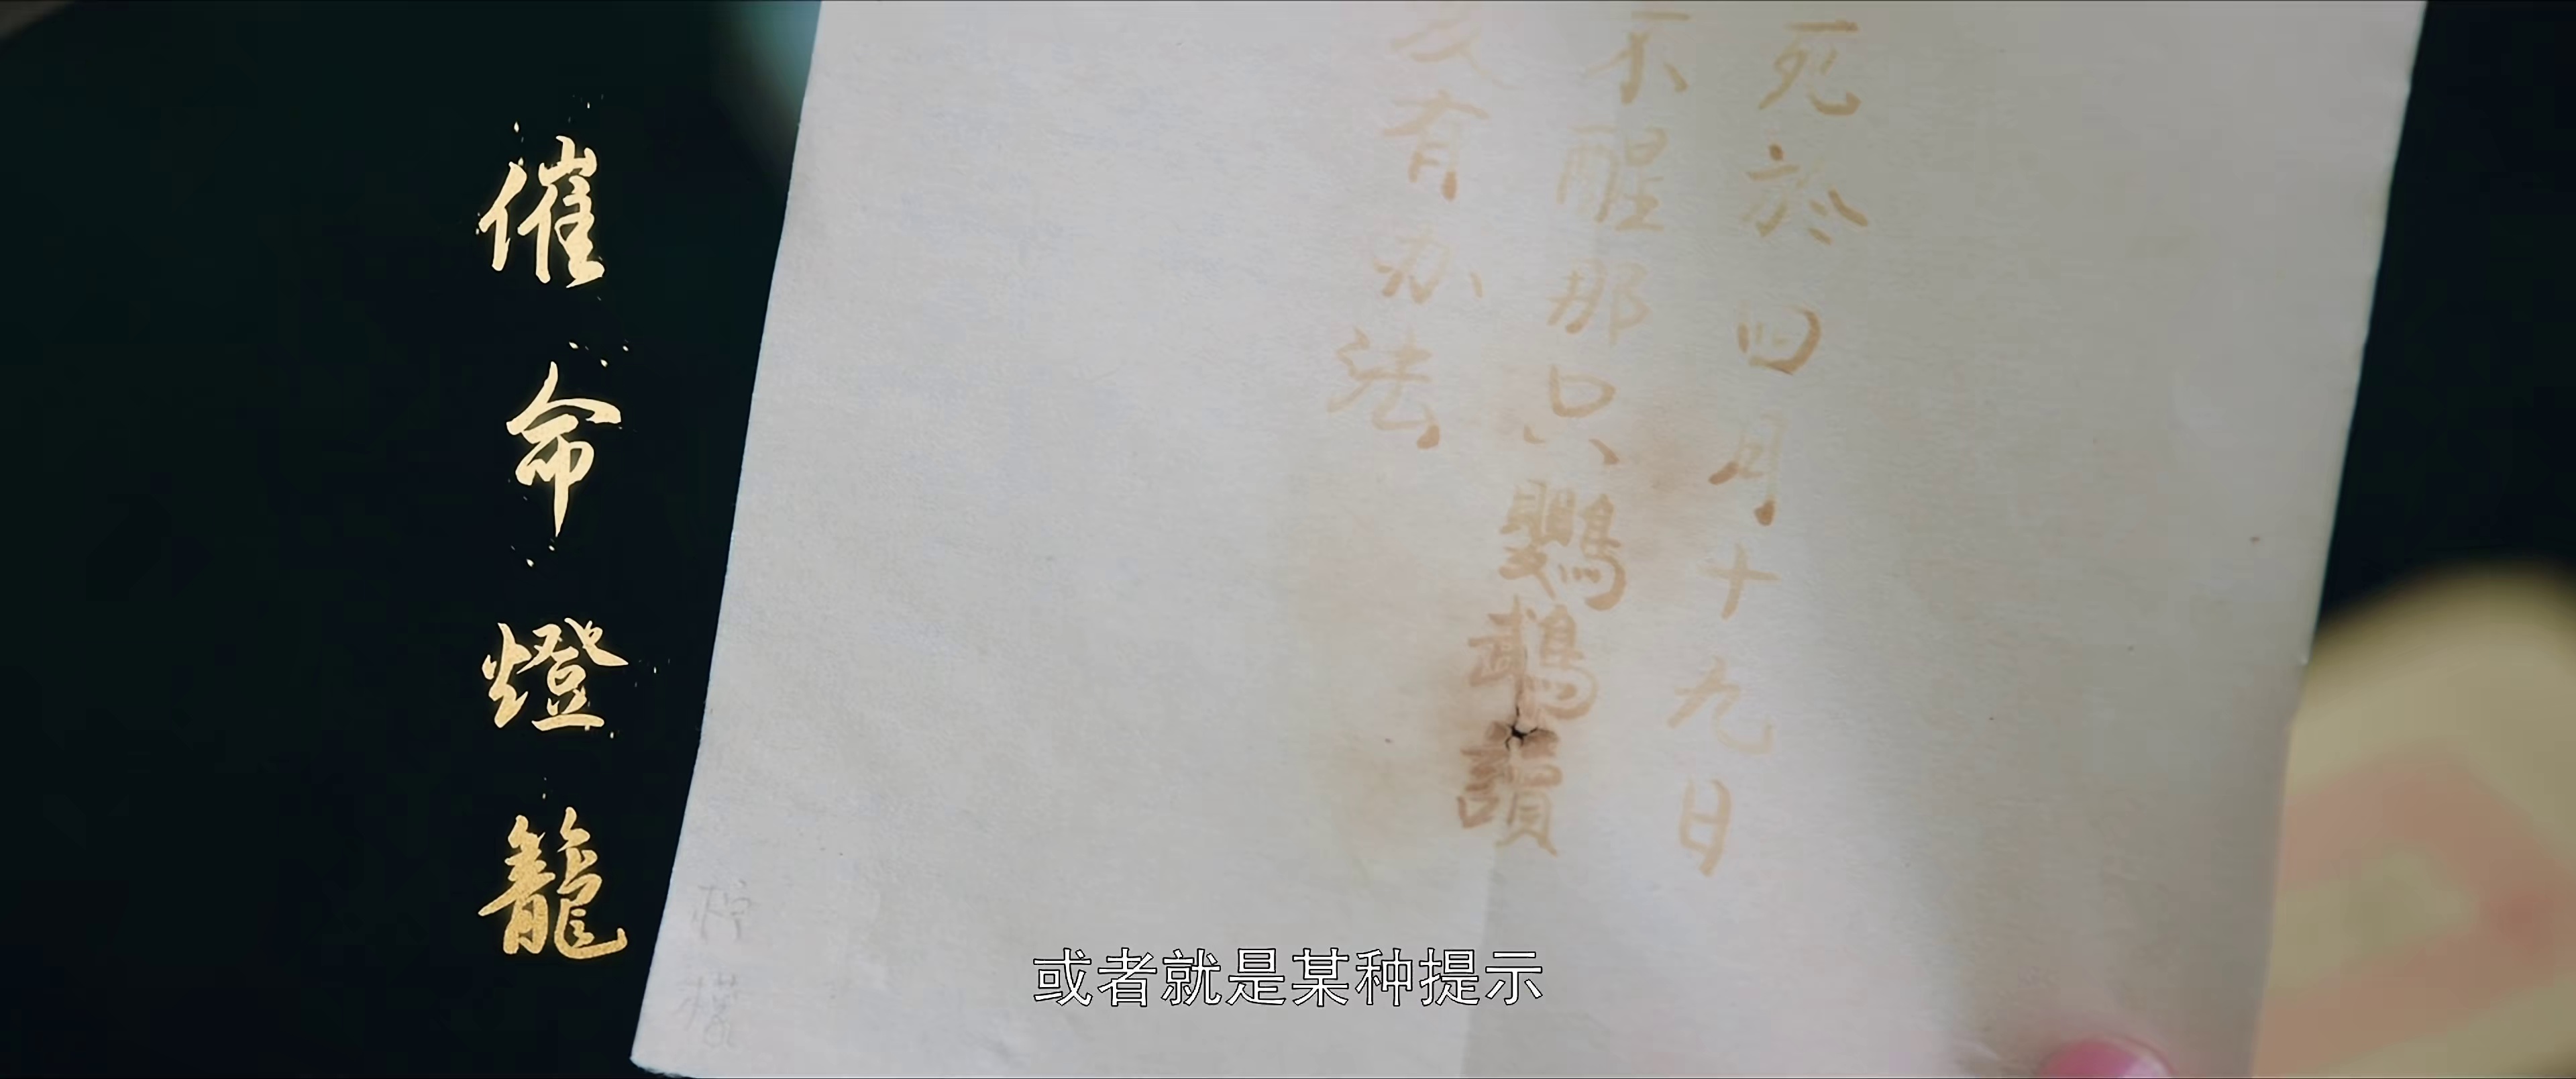 催命燈籠
死於四月十九日
不醒那只鸚鵡讀
有办法
柠檬
或者就是某种提示